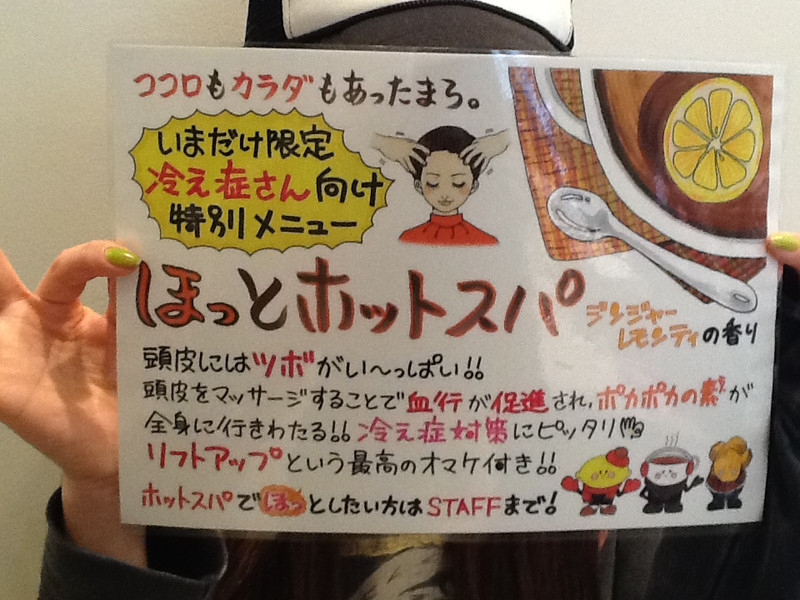 ココロもカラダもあったまろ。
いまだけ限定
冷え症さん向け
特別メニュー
ほっとホットスパ
ジンジャー
レモンティの香り
頭皮にはツボがい〜っぱい!!
頭皮をマッサージすることで血行が促進され、ポカポカの素が
全身に行きわたる!! 冷え症対策にピッタリ
リフトアップという最高のオマケ付き!!
ホットスパでほっとしたい方はSTAFFまで!